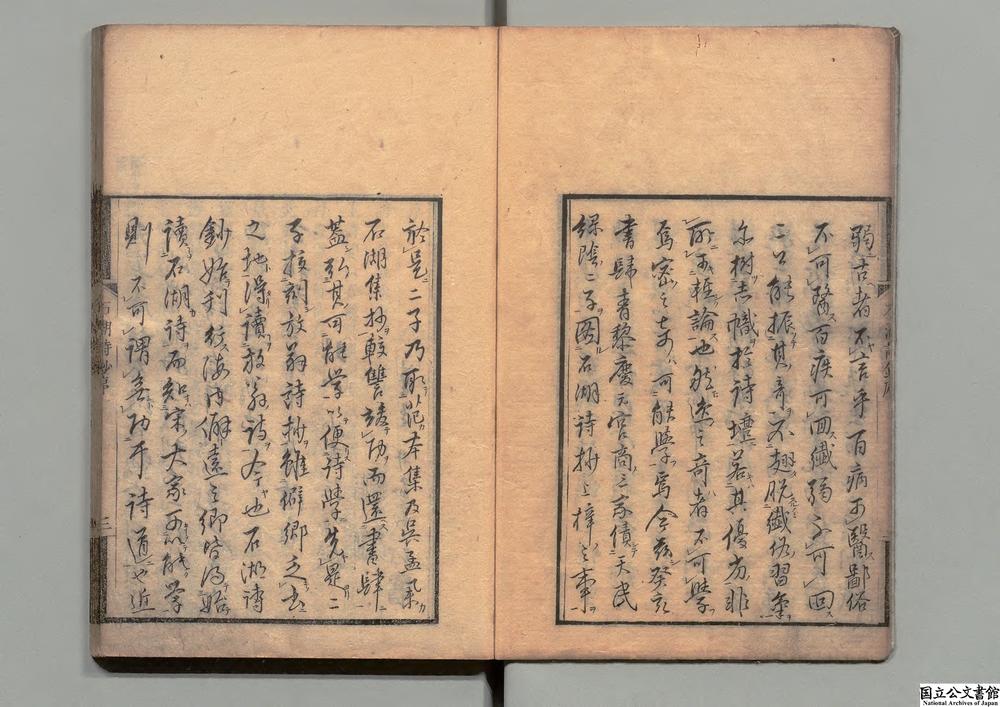 弱古者不言乎百病可醫鄙俗
不可醫百疾可回纖弱不可回
二公能振其奇不翅脱纖仍習氣
尓樹赤幟於詩壇若其優劣非
所可輕論也然其奇者不可學
焉密者可能學焉今茲癸亥
書肆青黎慶元宮商三家債天民
緑陰二子圖石湖詩抄上梓之事
於是二子乃取所本集及吳孟舉
石湖集抄較讐竣功而還書肆
蓋欲其可能學以便詩學先是二
子校刻放翁詩抄雖僻鄉之士
之地得讀放翁詩今也石湖詩
鈔始刊行海内僻遠之鄉皆得始
讀石湖詩而知宋大家可以能學
則不可謂無功于詩道也近
石湖詩鈔序
三
国立公文書館
National Archives of Japan